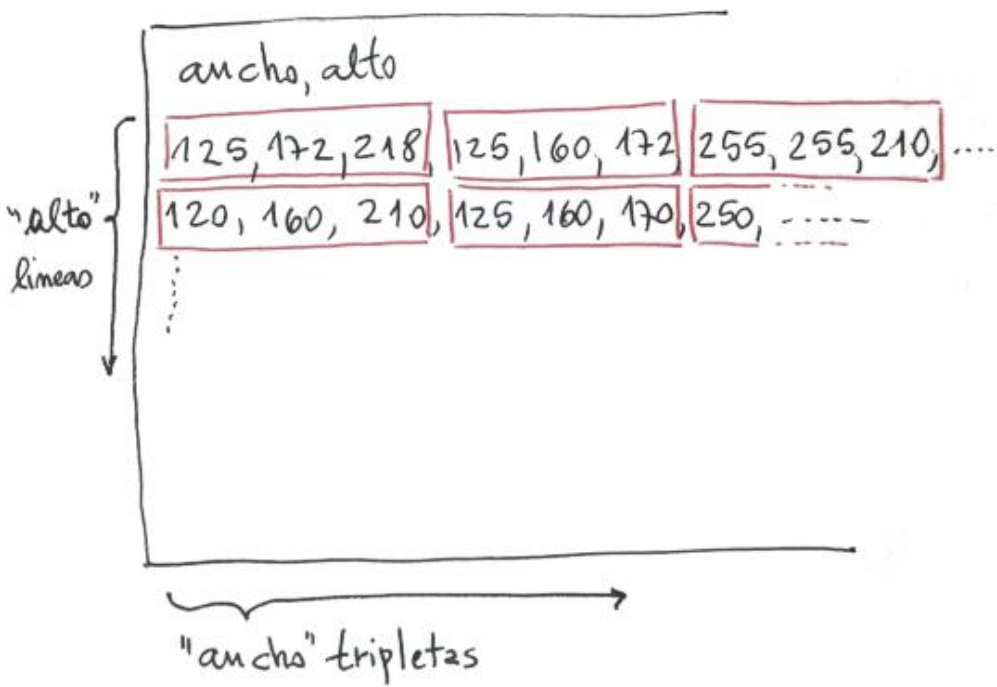 ancho, alto
125, 172, 218, 125, 160, 172, 255, 255, 210, ....
120, 160, 210, 125, 160, 170, 250, ------
"alto"
lineas
"ancho" tripletas